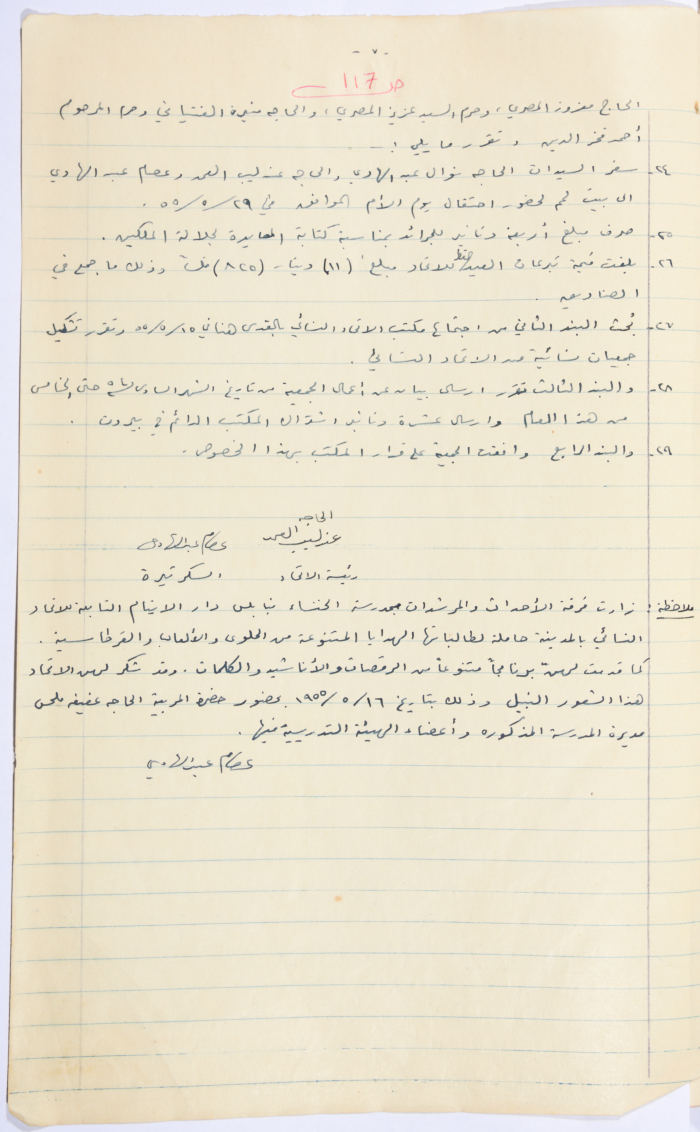 - ٧ -
ص 117
الحاج معزوز المصري، وحرم السيد عزيز المصري، والحاجه منيرة الفتياني وحرم المرحوم
أحمد فخر الدين وتقرر ما يلي :-
٢٤- سفر السيدات الحاجه نوال عبد الهادي والحاجه عندليب العمد وعصام عبد الهادي
الى بيت لحم لحضور احتفال يوم الأم الموافق في ٢٩/٥/٥٥ .
٢٥- صرف مبلغ أربعة دنانير للجرائد بمناسبة كتابة المعايدة لجلالة الملكين .
٢٦- بلغت قيمة تبرعات العيد للاتحاد مبلغ (١١) دينار (٨٢٥) فلساً وذلك ما جمع في
الصناديق .
٢٧- بُحث البند الثاني من اجتماع مكتب الاتحاد النسائي بالقدس ١٥/٥/٥٥ وتقرر تشكيل
جمعيات نسائية من الاتحاد النسائي .
٢٨- والبند الثالث تقرر ارسال بيان عن أعمال الجمعية من تاريخ الشهر السادس حتى الخامس
من هذا العام وارسال عشرة دنانير اشتراك المكتب الدائم في بيروت .
٢٩- والبند الرابع وافقت الجمعية على قرار المكتب بهذا الخصوص .
الحاجه
عندليب العمد عصام عبد الهادي
رئيسة الاتحاد السكرتيرة
ملاحظة : زارت فرقة الأحداث والمرشدات بمدرسة الخنساء بنابلس دار الايتام التابعة للاتحاد
النسائي بالمدينة حاملة لطالباتها الهدايا المتنوعة من الحلوى والألعاب والقرطاسية .
كما قدمت لهن برنامجاً متنوعاً من الرقصات والأناشيد والكلمات . وقد شكر لهن الاتحاد
هذا الشعور النبيل وذلك بتاريخ ١٦/٥/١٩٥٥ بحضور حضرة المربية الحاجه عفيفه ملحس
مديرة المدرسة المذكوره وأعضاء الهيئة التدريسية فيها .
عصام عبد الهادي